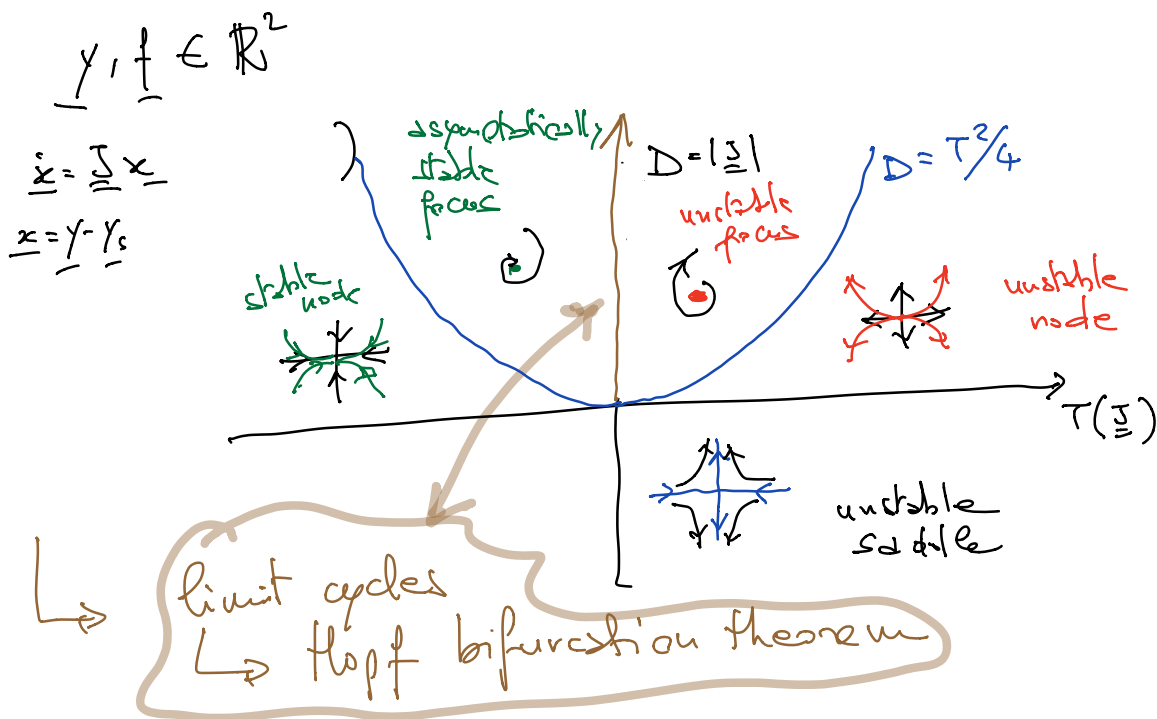 y, f ∈ ℝ²
ẋ = J x
x = y - yₛ
asymptotically
stable
focus
D = |J|
D = T²/4
unstable
focus
stable
node
unstable
node
T(J)
unstable
saddle
limit cycles
Hopf bifurcation theorem